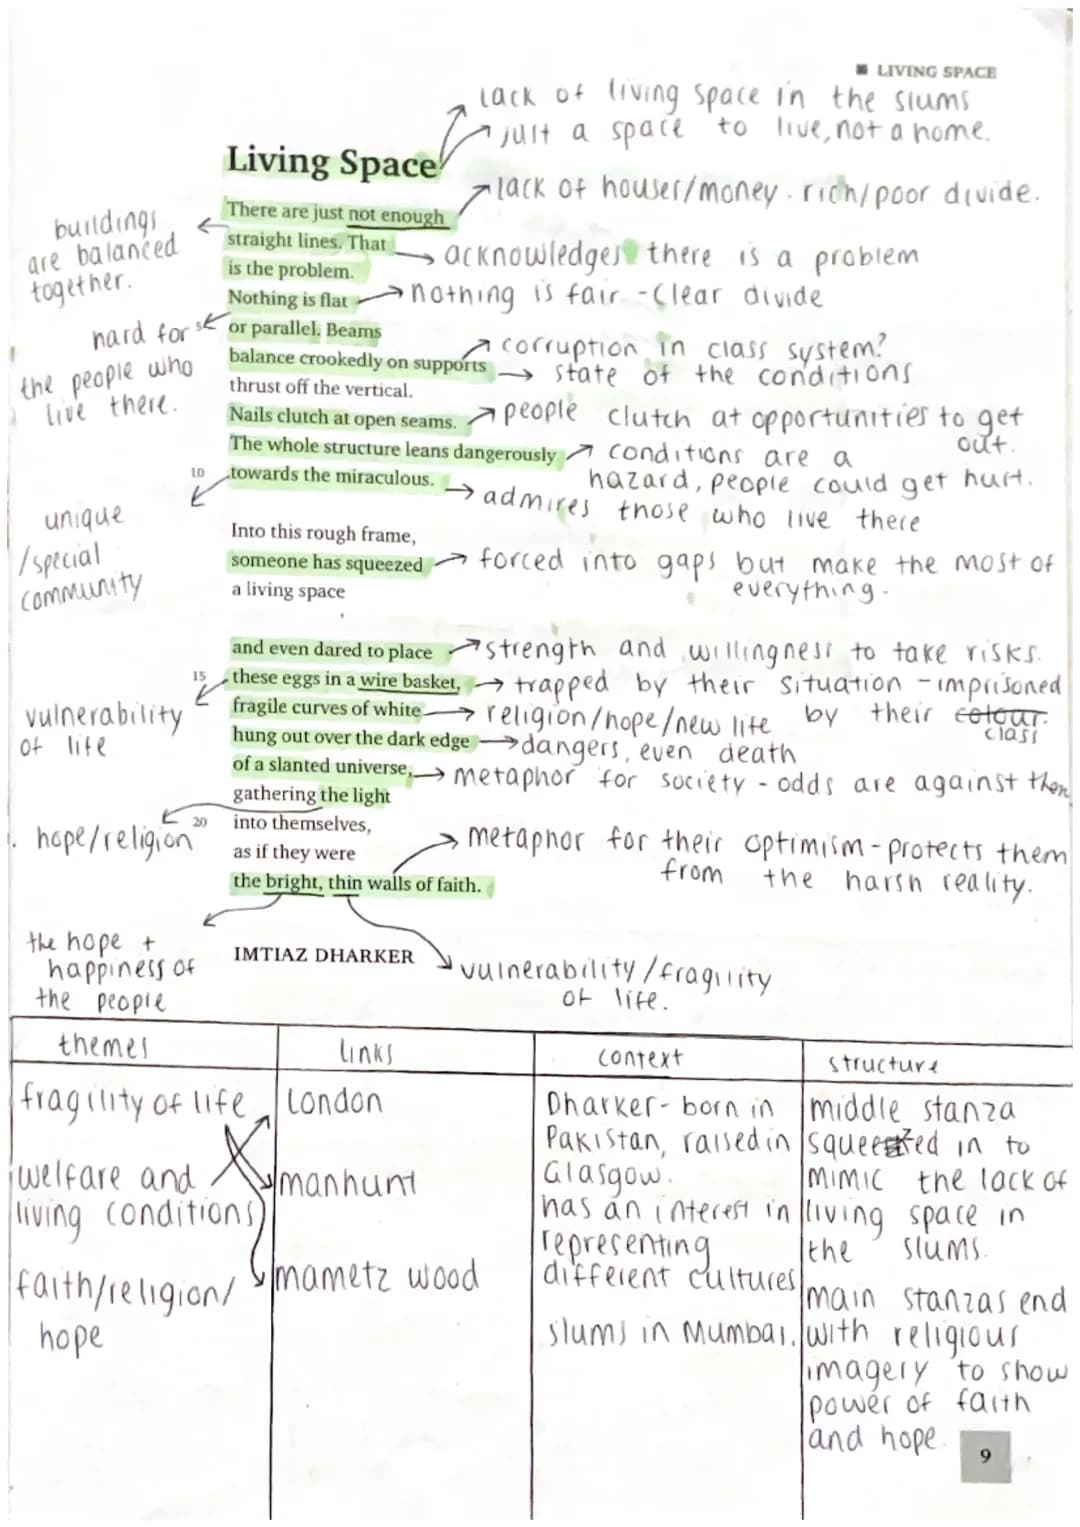 ■ LIVING SPACE
lack of living space in the slums
just a space to live, not a home.
Living Space
lack of houses/money. rich/poor divide.
There are just not enough
buildings
are balanced
together.
straight lines. That
acknowledges there is a problem
is the problem.
Nothing is flat
nothing is fair - clear divide
hard for
the people who
live there.
5
or parallel. Beams
corruption in class system?
balance crookedly on supports
state of the conditions
thrust off the vertical.
Nails clutch at open seams.
people clutch at opportunities to get
out.
The whole structure leans dangerously
conditions are a
hazard, people could get hurt.
10
towards the miraculous.
admires those who live there
unique
/special
community
Into this rough frame,
someone has squeezed
forced into gaps but make the most of
everything.
a living space
and even dared to place
strength and willingness to take risks.
15
these eggs in a wire basket,
trapped by their situation - imprisoned
by their colour.
class
vulnerability
of life
fragile curves of white
religion/hope/new life
hung out over the dark edge
dangers, even death
of a slanted universe,
metaphor for society - odds are against them
gathering the light
hope/religion
20
into themselves,
as if they were
metaphor for their optimism - protects them
from the harsh reality.
the bright, thin walls of faith.
the hope +
happiness of
the people
IMTIAZ DHARKER
vulnerability/fragility
of life.
themes
fragility of life
welfare and
living conditions
faith/religion/
hope
links
London
manhunt
mametz wood
context
Dharker - born in
Pakistan, raised in
Glasgow.
has an interest in
representing
different cultures
slums in Mumbai.
structure
middle stanza
squeezed in to
mimic the lack of
living space in
the slums.
main stanzas end
with religious
imagery to show
power of faith
and hope
9